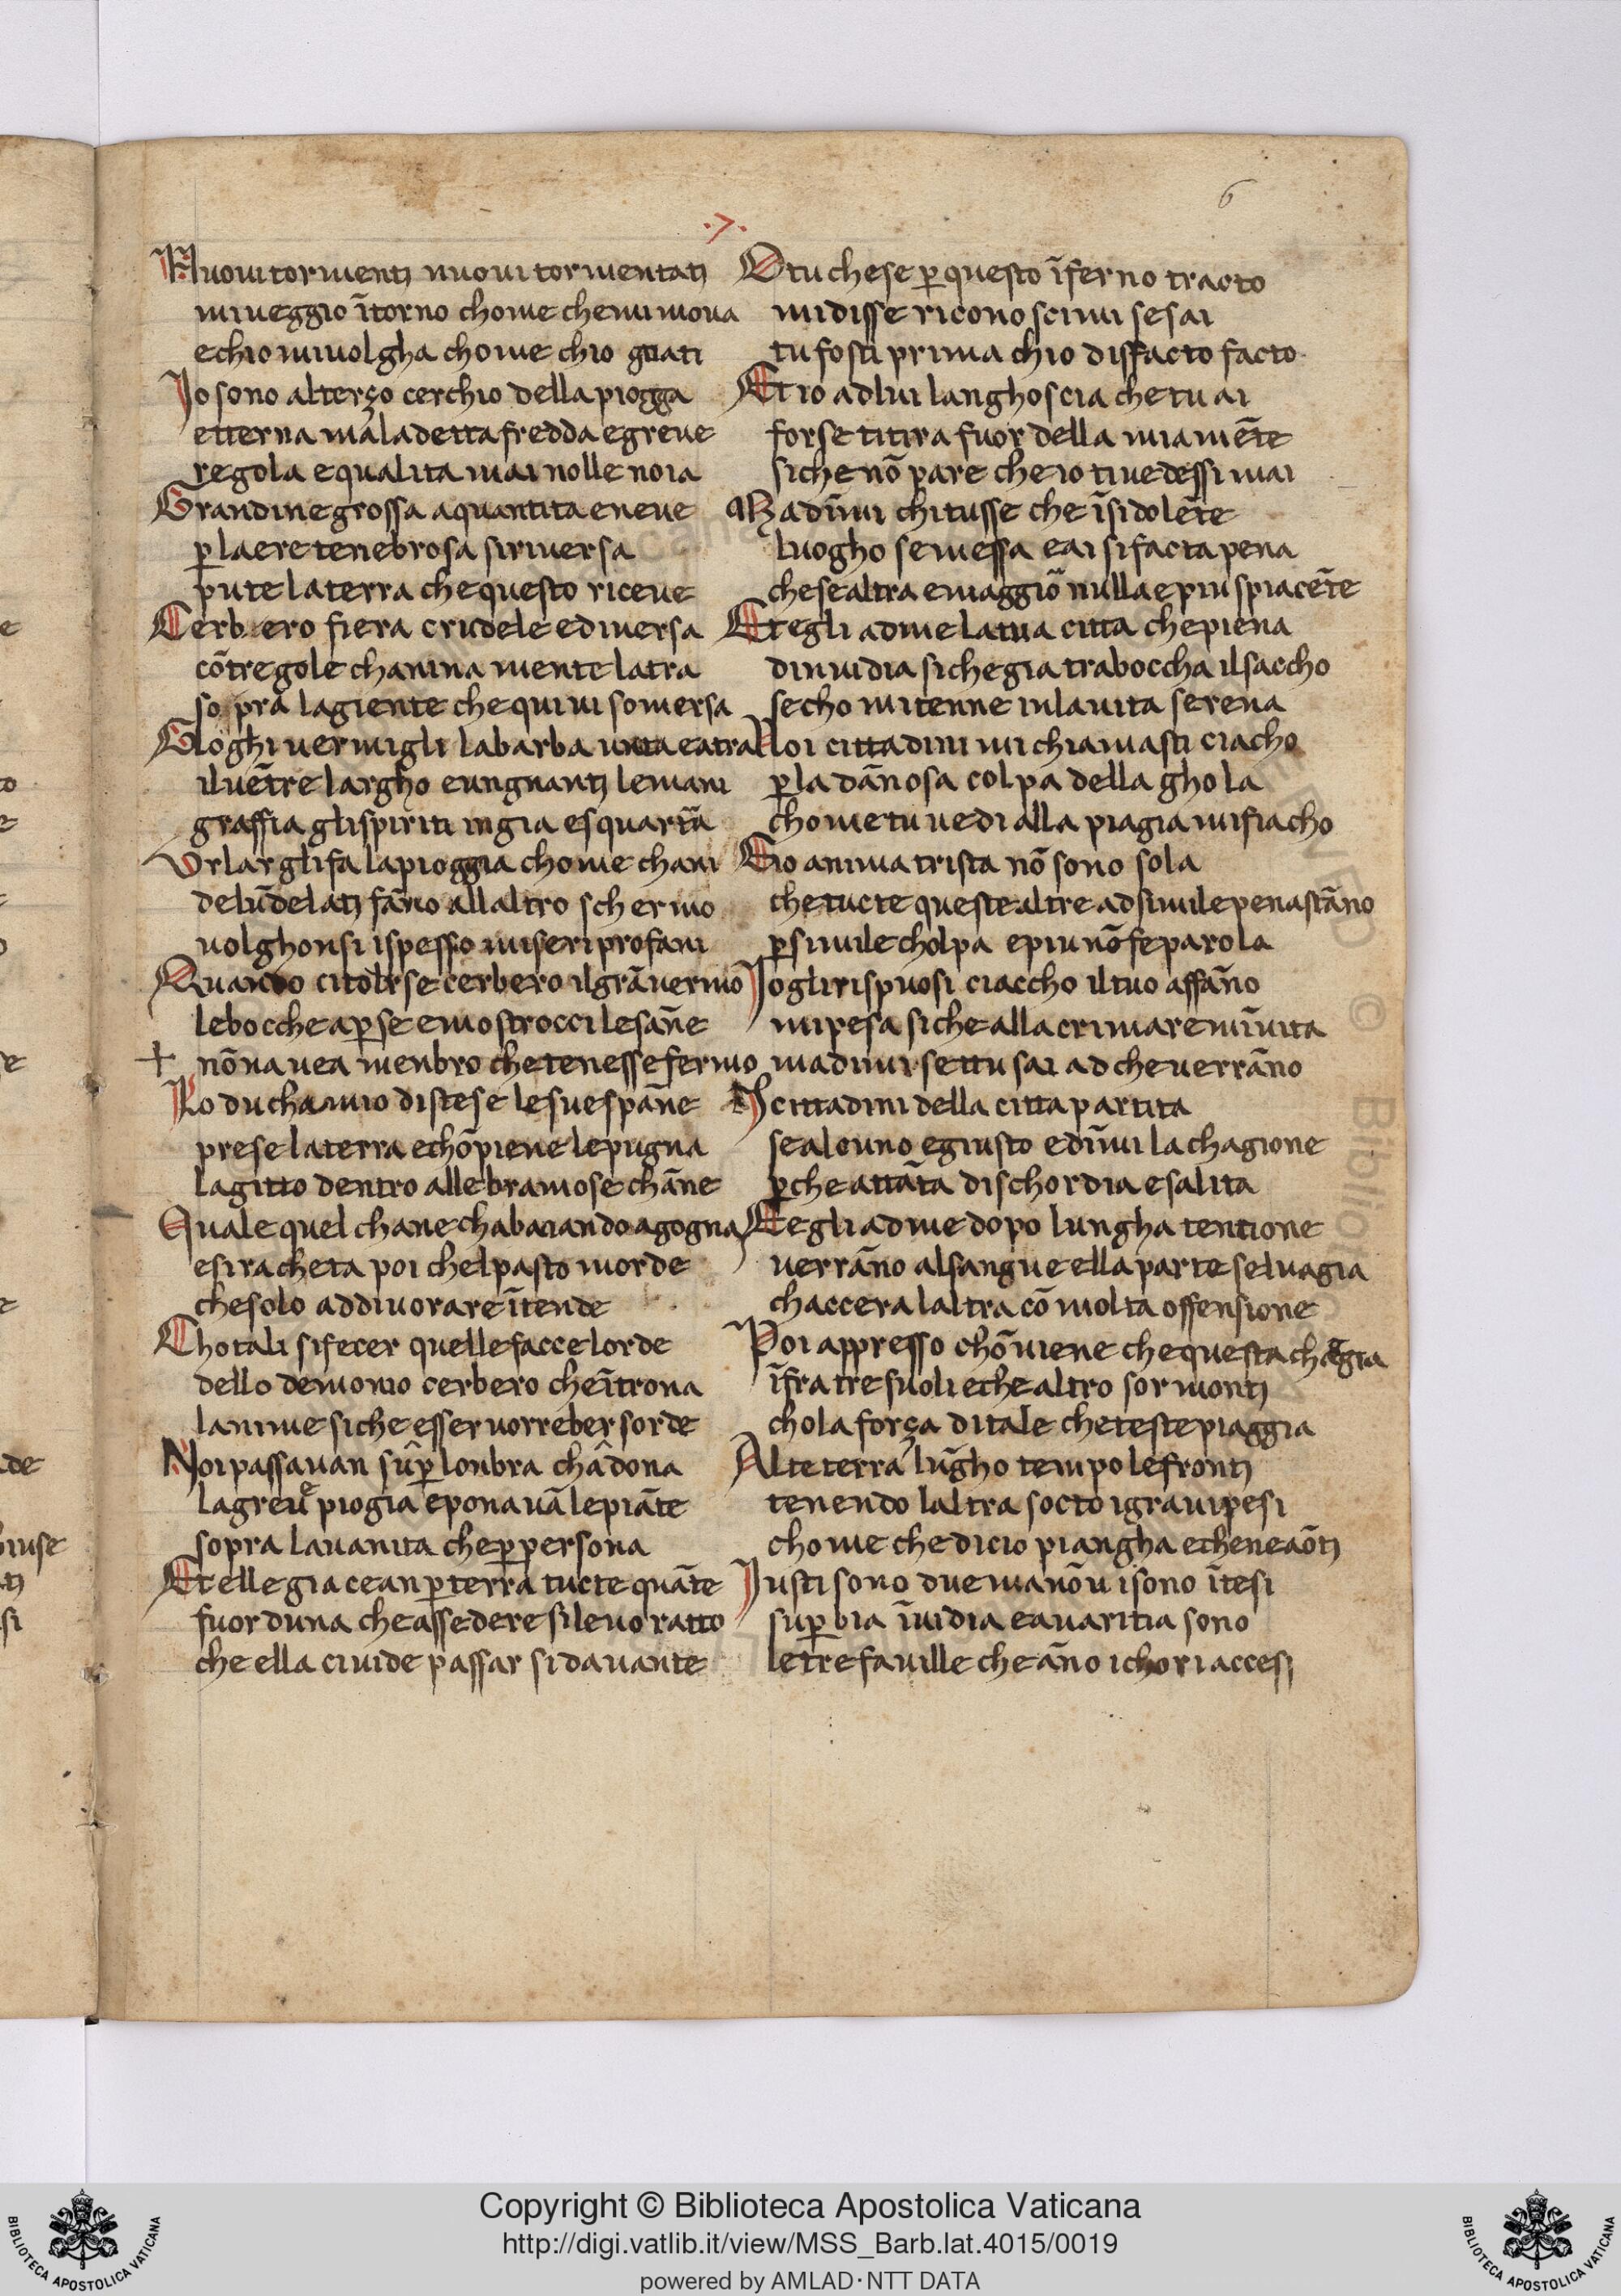 6
.7.
Nuoui tormenti nuoui tormentati
mi ueggio ītorno chome che mi moua
e chio mi uolgha chome chio guati
Jo sono al terço cerchio della piogga
etterna maladetta fredda e greue
regola e qualita mai nolle noia
Grandine grossa aqua ntita e neue
ꝑ laere tenebrosa si riuersa
pute la terra che questo riceue
Cerbero fiera crudele e diuersa
cō tre gole chanina mente latra
sopra la giente che quiui somersa
Gloghi uermigli la barba unta e atra
il uētre largho e ungnanti le mani
graffia gli spiriti ingia e squartā
Urlar gli fa la pioggia chome chani
de lū de lati fāno allaltro schermo
uolghonsi ispesso miseri profani
Quando ci tolrse cerbero il grā uermo
le bocche aꝑse e mostrocci le sāne
+ nōn auea menbro che tenesse fermo
Lo ducha mio distese le sue spāne
prese la terra e chō piene le pugna
la gitto dentro alle bramose chāne
Quale quel chane chabaiando agogna
e si racheta poi chel pasto morde
che solo ad diuorare ītende
Chotali si fecer quelle facce lorde
dello demonio cerbero che ītrona
lanime si che esser uorreber sorde
Noi passauan sū ꝑ lonbra chādona
la greue piogia e ponauā le piāte
sopra la uanita che ꝑ persona
Et elle giacean ꝑ terra tucte quāte
fuor duna che assedere si leuo ratto
che ella ci uide passarsi dauante
O tu che se ꝑ questo īferno tracto
mi disse riconoscimi se sai
tu fosti prima chio disfacto facto
Et io ad lui langhoscia che tu ai
forse ti tira fuor della mia mēte
si che nō pare che io ti uedessi mai
Ma dīmi chi tusse che ī si dolēte
luogho se messa e ai si facta pena
che se altra e maggiō nulla e piu spiacēte
Et egli ad me la tua citta che piena
dinuidia si che gia traboccha il saccho
secho mi tenne in la uita serena
Noi cittadini mi chiamasti ciacho
ꝑ la dānosa colpa della ghola
chome tu uedi alla piagia mi fiacho
E io anima trista nō sono sola
che tucte queste altre ad simile pena stāno
ꝑ simile cholpa e piu nō fe parola
Jo gli rispuosi ciaccho il tuo affāno
mi pesa si che allacrimare mīuita
ma dimi settu sai ad che uerrāno
J cittadini della citta partita
se alcuno e giusto e dīmi la chagione
ꝑche attāta dischordia e salita
E egli ad me dopo lungha tentione
uerrāno al sangue e lla parte seluagia
chaccera laltra cō molta offensione
Poi appresso chōuiene che questa chagia
īfra tre suoli e che altro sormonti
cho la força di tale che teste piaggia
Alte terra lūgho tempo le fronti
tenendo laltra socto i graui pesi
chome che di cio piangha e che ne aōti
Justi sono due ma nō ui sono ītesi
suꝑbia īuidia e auaritia sono
le tre fauille che āno i chori accesi
Copyright © Biblioteca Apostolica Vaticana
http://digi.vatlib.it/view/MSS_Barb.lat.4015/0019
powered by AMLAD·NTT DATA
BIBLIOTECA APOSTOLICA VATICANA
BIBLIOTECA APOSTOLICA VATICANA